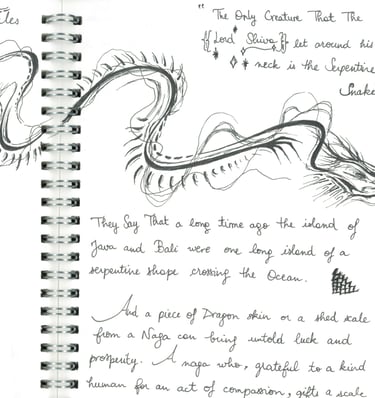 tles
" The Only Creature That The
{{ Lord Shiva }} let around his
neck is the Serpentine
Snake
They Say That a long time ago the island of
Java and Bali were one long island of a
serpentine shape crossing the Ocean.
And a piece of Dragon skin or a shed scale
from a Naga can bring untold luck and
prosperity. A naga who, grateful to a kind
human for an act of compassion, gifts a scale